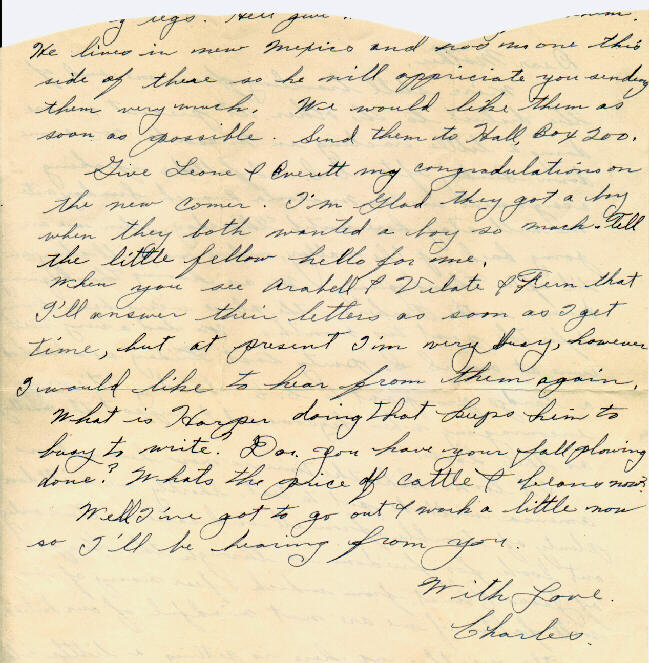 regs. He'll give
He lives in new Mexico and no one this
side of there so he will appriciate you sending
them very much. We would like them as
soon as possible. Send them to Hall, Box 200.
Give Leone & Everett my congradulations on
the new comer. I'm Glad they got a boy
when they both wanted a boy so much. tell
the little fellow hello for me.
When you see Arabell & Vilate & Fern that
I'll answer their letters as soon as I get
time, but at present I'm very busy, however
I would like to hear from them again.
What is Harper doing that keeps him to
busy to write. Do you have your fall plowing
done? Whats the price of cattle & beans now?
Well I've got to go out & work a little now
so I'll be hearing from you.
With Love.
Charles.